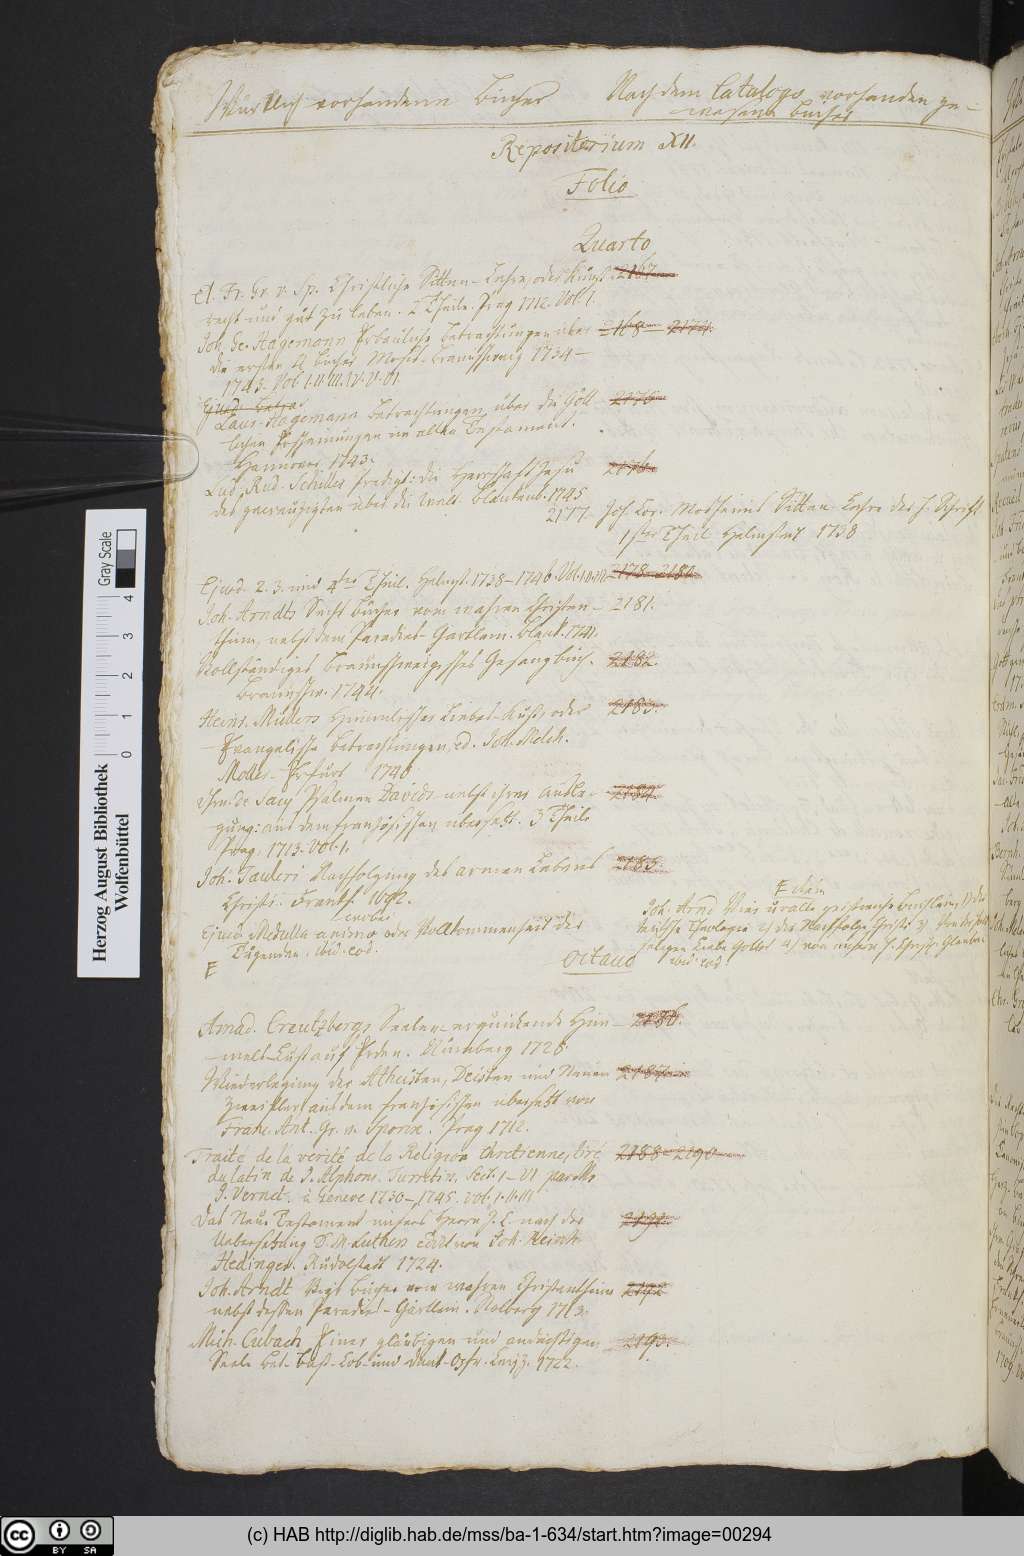 Würklich vorhandene Bücher
Nach dem Catalogo vorhanden ge-
wesene Bücher
Repositorium XII.
Folio
Quarto
Fr. Gr. v. Sp. Christliche Sitten-Lehre, oder Kunst 2167
recht und gut zu leben. 2 Theile. Prag 1712. Vol. 1.
Joh. Ge. Hagemann Erbauliche Betrachtungen über 2168 2174.
die ersten Bücher Mosis. Braunschweig 1734-
1743. Vol. I. II. III. IV. V. VI
Ejusd.
Laur. Hagemann Betrachtungen über die Gött- 2175
lichen Erscheinungen im alten Testament.
Hannover. 1743.
Lud. Rud. Schiller Predigt: die Herrschaft Jesu 2176
des gecreuzigten über die Welt. Blankenb. 1745
2177. Joh. Lor. Mosheims Sitten-Lehre der h. Schrift
1ster Theil. Helmstät 1738
Ejusd. 2. 3. und 4ter Theil. Helmst. 1738-1746. Vol. I. II. III. 2178-2180.
Joh. Arndts Sechs Bücher vom wahren Christen- 2181.
thum, nebst dem Paradies-Gärtlein. Blank. 1741.
Vollständiges Braunschweigisches Gesangbuch. 2182.
Braunschw. 1744.
Heinr. Müllers Himmlischer Liebes-Kuß, oder 2183.
Evangelische Betrachtungen, ed. Joh. Melch.
Moller. Erfurt 1740
de Sacy Psalmen Davids nebst ihrer Ausle- 2184.
gung: aus dem französischen übersetzt. 3 Theile
Prag. 1713. Vol. 1.
Joh. Tauleri Nachfolgung des armen Lebens 2185.
Christi. Frankf. 1692.
Ejusd. Medulla animæ oder Vollkommenheit der
Tugenden. ibid. eod.
Joh. Arnd uralte geistreiche Büchlein, 1) die
teutsche Theologie 2) die Nachfolge Christi 3)
Liebe Gottes 4) von unserm h. Christl. Glauben
ibid. eod.
Octavo
Amad. Creutzbergs Seelen-erquickende Him- 2186.
mels-Lust auf Erden. Nürnberg 1728.
Wiederlegung der Atheisten, Deisten und Neuen 2187.
Zweifler: aus dem französischen übersetzt von
Franc. Ant. Gr. v. Sporck. Prag 1712.
Traité de la verité de la Religion chretienne, tiré 2188-2190
du latin de J. Alphons. Turretin. Sect. I-VI par
J. Vernet. à Geneve 1730-1745. Vol. I. II. III
Das Neue Testament unsers Herrn J. C. nach der 2191.
Uebersetzung D. M. Luthers edirt von Joh. Reinh.
Hedinger. Rudolstadt 1724.
Joh. Arndt Vier Bücher vom wahren Christenthum 2192
nebst dessen Paradies-Gärtlein. 1713.
Mich. Cubach Einer gläubigen und andächtigen 2193.
Seele Bet- Buß- Lob- und Dank-Opfer. Leipz. 1722.
Herzog August Bibliothek
Wolfenbüttel
Gray Scale
0 1 2 3 4
cc BY SA
(c) HAB http://diglib.hab.de/mss/ba-1-634/start.htm?image=00294